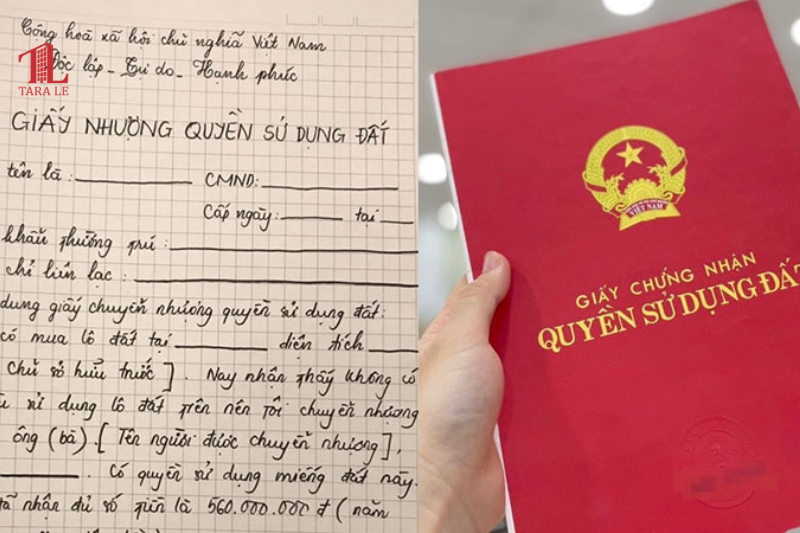 TARA LE
Cộng hoà xã hội chủ nghĩa Việt Nam
Độc lập - Tự do - Hạnh phúc
GIẤY NHƯỢNG QUYỀN SỬ DỤNG ĐẤT
tên là : CMND:
Cấp ngày: tại
khẩu thường trú :
chỉ liên lạc :
dung giấy chuyển nhượng quyền sử dụng đất:
có mua lô đất tại diện tích
chủ sở hữu trước ] . Nay nhận thấy không có
sử dụng lô đất trên nên tôi chuyển nhượng
ông (bà) [ Tên người được chuyển nhượng ],
. Có quyền sử dụng miếng đất này.
đã nhận đủ số tiền là 560.000.000 đ ( năm
VIỆT NAM
GIẤY CHỨNG NHẬN
QUYỀN SỬ DỤNG ĐẤT